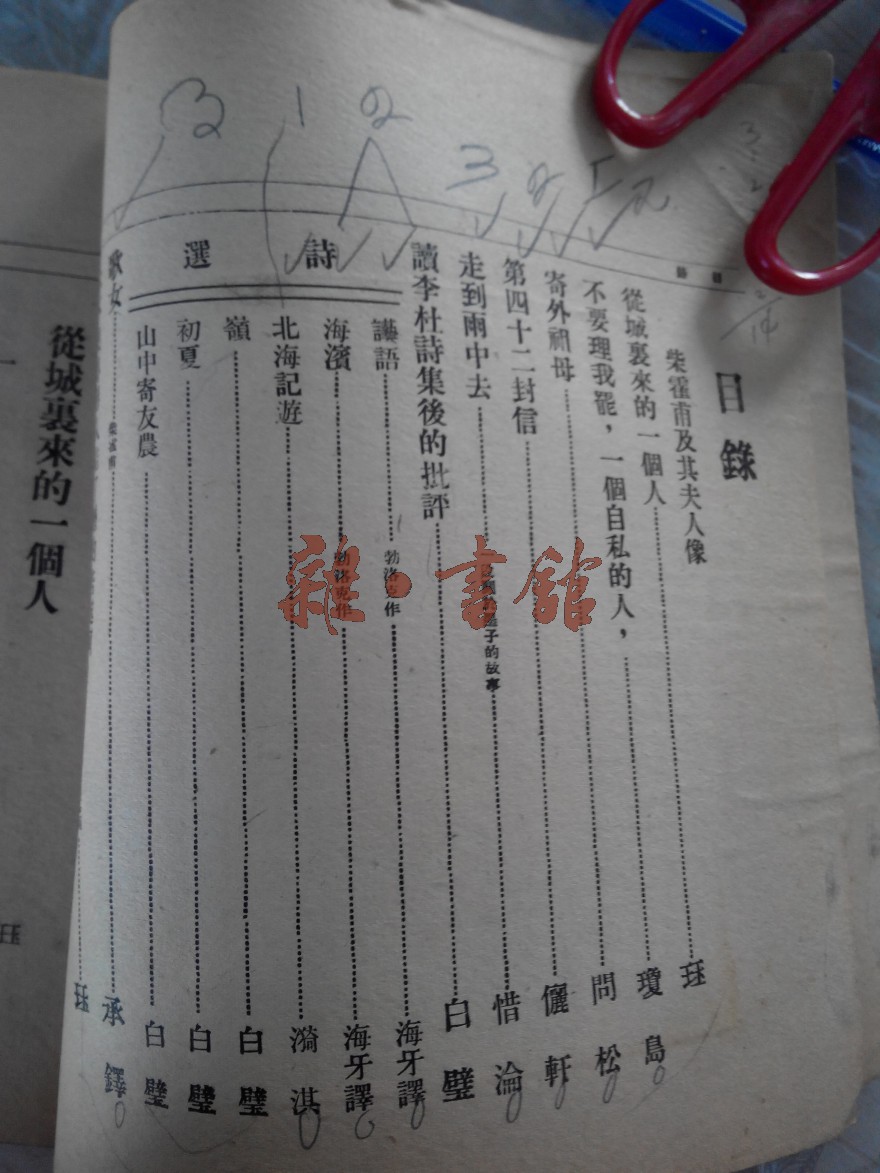 3 1 2 3 2
目錄
柴霍甫及其夫人像
從城裏來的一個人……珏
不要理我罷，一個自私的人，……瓊島
寄外祖母……問松
第四十二封信……儷軒
走到雨中去……子的故事……惜淪
讀李杜詩集後的批評……白璧
詩選
譫語……勃洛克作……海牙譯
海濱……勃洛克作……海牙譯
北海記遊……漪淇
嶺……白璧
初夏……白璧
山中寄友農……白璧
歌女……承鐸
……珏
從城裏來的一個人
雜·書館